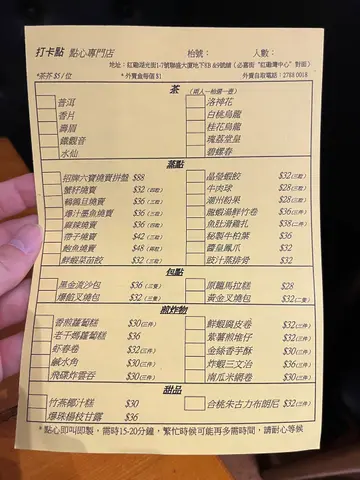 打卡點 點心專門店 枱號： 人數：
地址：紅磡湖光街1-7號聯盛大廈地下EB &9號舖（必嘉街"紅磡灣中心"對面）
*茶芥 $5/位 *外賣盒每個 $1 外賣自取電話：2788 0018
茶 （兩人一枱選一壺）
普洱 洛神花
香片 白桃烏龍
壽眉 桂花烏龍
鐵觀音 瑰荔堂皇
水仙 碧螺春
蒸點
招牌六寶燒賣拼盤 $88 晶瑩蝦餃 $32（三粒）
蟹籽燒賣 $32（四粒） 牛肉球 $28（三粒）
鵪鶉旦燒賣 $36（三粒） 潮州粉果 $28（三粒）
爆汁墨魚燒賣 $36（三粒） 龍蝦湯鮮竹卷 $36（三件）
麻辣燒賣 $36（四粒） 魚肚滑雞扎 $38（二件）
帶子燒賣 $42（三粒） 秘製牛柏葉 $36
鮑魚燒賣 $48（兩粒） 醬皇鳳爪 $32
鮮蝦菜苗餃 $32（三粒） 豉汁蒸排骨 $32
包點
黑金流沙包 $36（三隻） 原籠馬拉糕 $28
爆餡叉燒包 $32（三隻） 黃金叉燒包 $32（二隻）
煎炸物
香煎蘿蔔糕 $30（三件） 鮮蝦腐皮卷 $32（三件）
老干媽蘿蔔糕 $36 紫薯煎堆仔 $32（三件）
虾春卷 $32（三件） 金絲香芋酥 $30（三件）
鹹水角 $30（三件） 炸蝦三文治 $36（三件）
飛碟炸雲吞 $30（三件） 南瓜米網卷 $30（三件）
甜品
竹燕椰汁糕 $30 合桃朱古力布朗尼 $32（三件）
爆珠楊枝甘露 $36
*點心即叫即製，需時15-20分鐘，繁忙時候可能再多需時間，請耐心等候